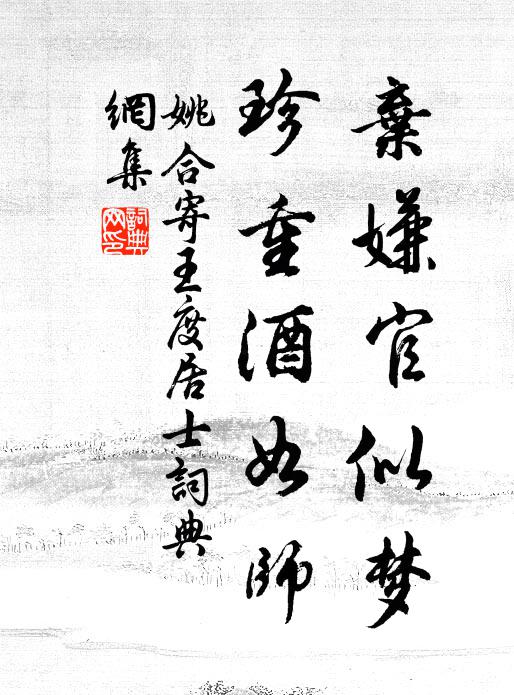 棄嫌官似梦
珍重酒如師
姚合寄王度居士詞典
網集
詞典
网印